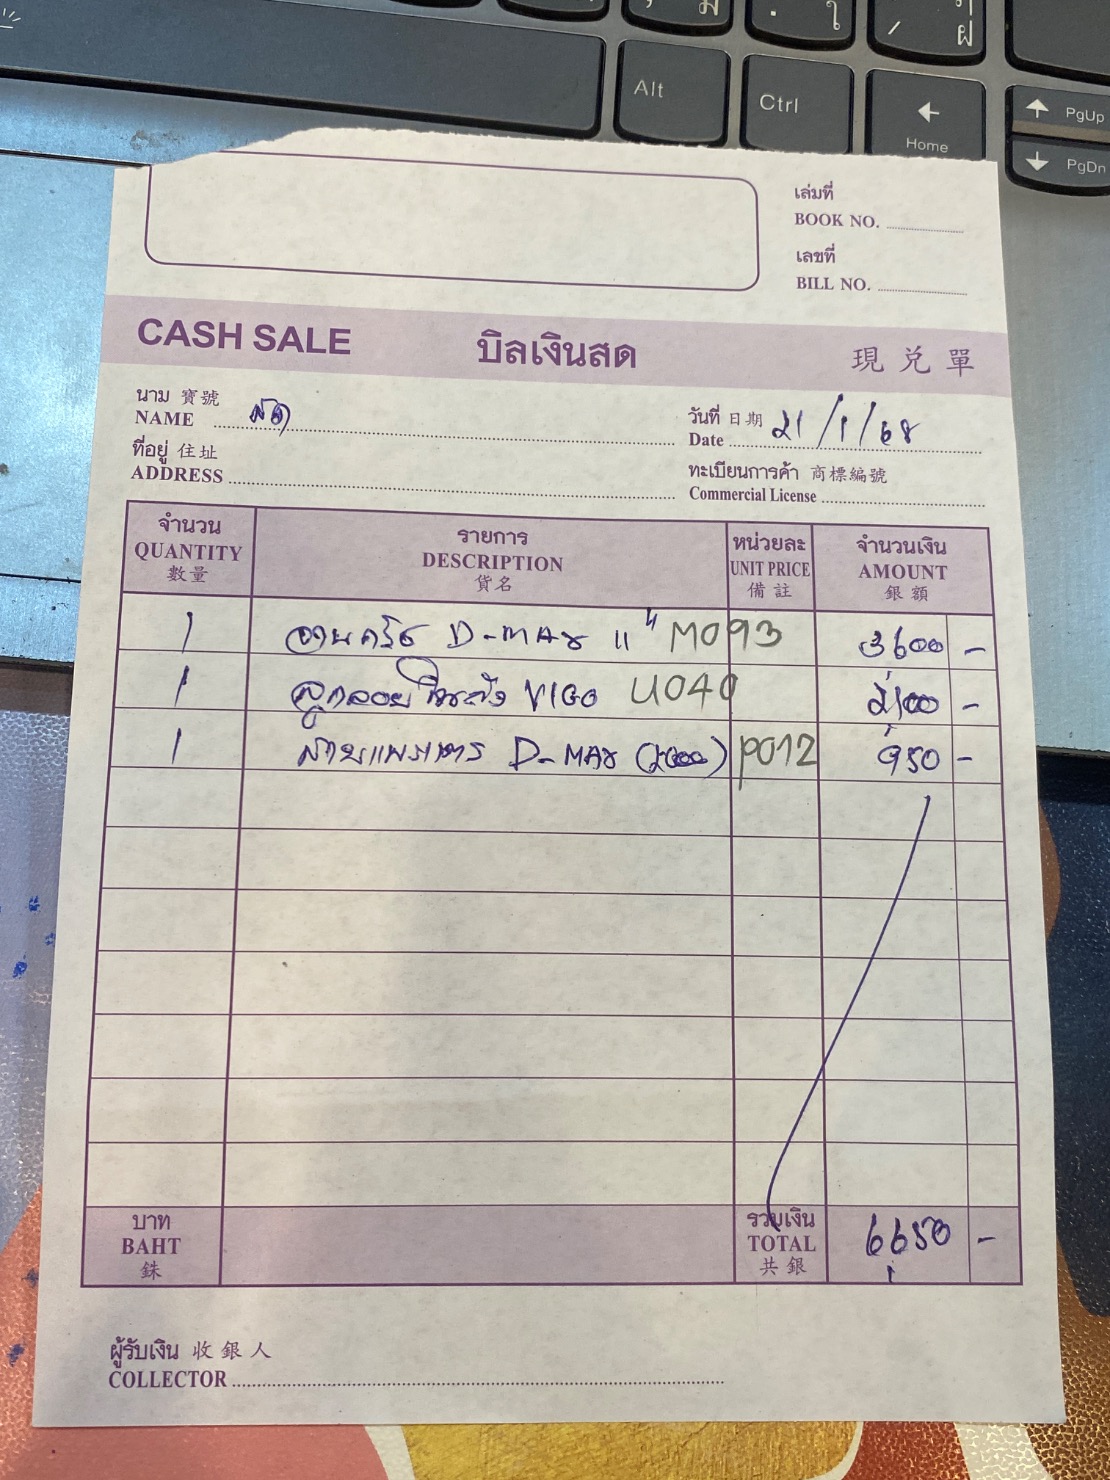 Alt
Ctrl
Home
PgUp
PgDn
เล่มที่
BOOK NO.
เลขที่
BILL NO.
CASH SALE บิลเงินสด 現兌單
นาม 寶號
NAME
วันที่ 日期
Date 21/1/68
ที่อยู่ 住址
ADDRESS
ทะเบียนการค้า 商標編號
Commercial License
จำนวน รายการ หน่วยละ จำนวนเงิน
QUANTITY DESCRIPTION UNIT PRICE AMOUNT
數量 貨名 備註 銀額
1 จานครัช D-MAX 11" M093 3600 -
1 ลูกลอยในถัง VIGO U040 2,100 -
1 สายแพรเตร D-MAX (2000) P012 950 -
บาท รวมเงิน
BAHT TOTAL 6,650 -
銖 共銀
ผู้รับเงิน 收銀人
COLLECTOR